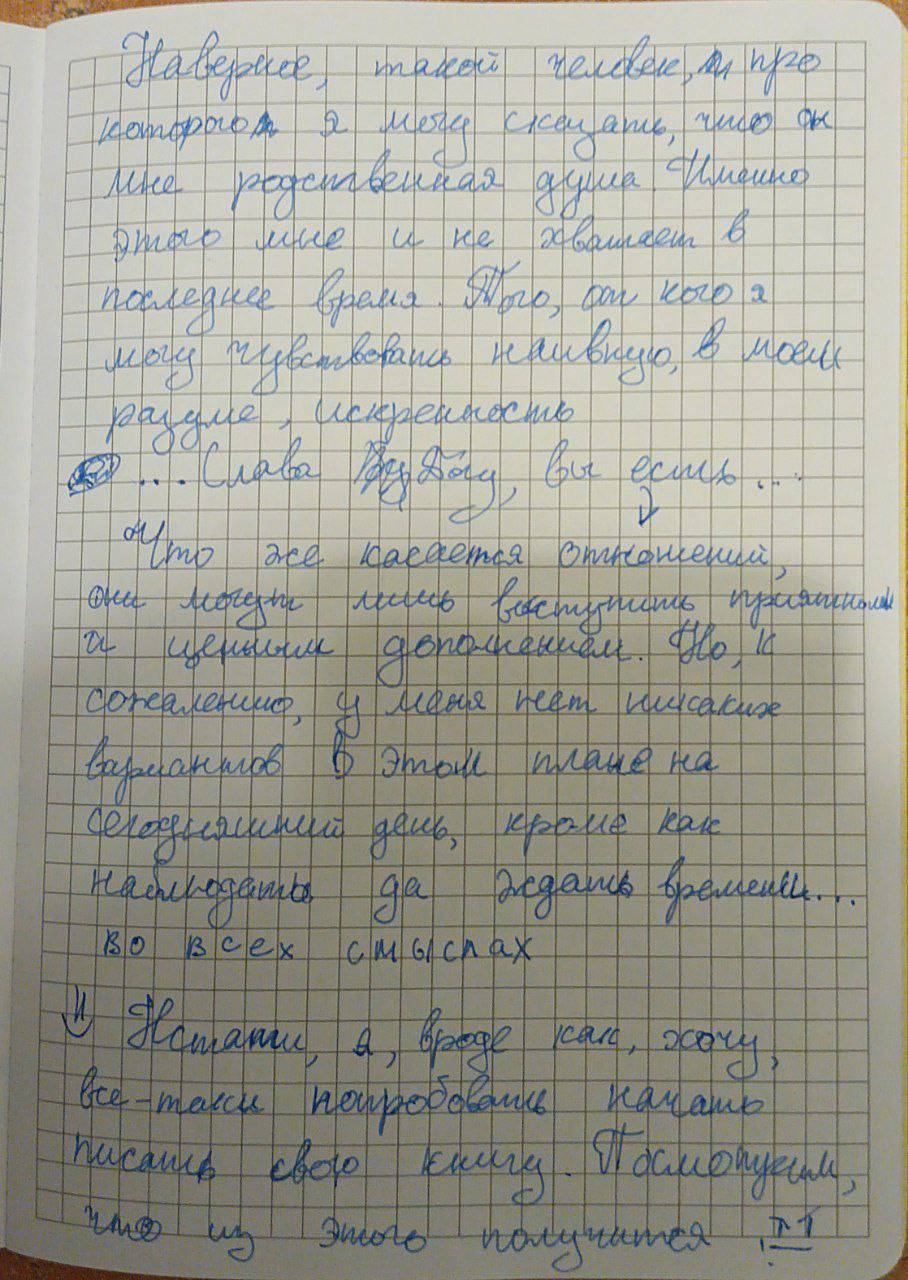 Наверное, такой человек, про
которого я могу сказать, что он
мне родственная душа. Именно
этого мне и не хватает в
последнее время. Того, от кого я
могу чувствовать наивную, в моем
разуме, искренность
... Слава Богу, вы есть ...
Что же касается отношений,
они могут лишь выступить приятным
и ценным дополнением. Но, к
сожалению, у меня нет никаких
вариантов в этом плане на
сегодняшний день, кроме как
наблюдать да ждать времени...
во всех смыслах
Кстати, я, вроде как, хочу,
все-таки попробовать начать
писать свою книгу. Посмотрим,
что из этого получится